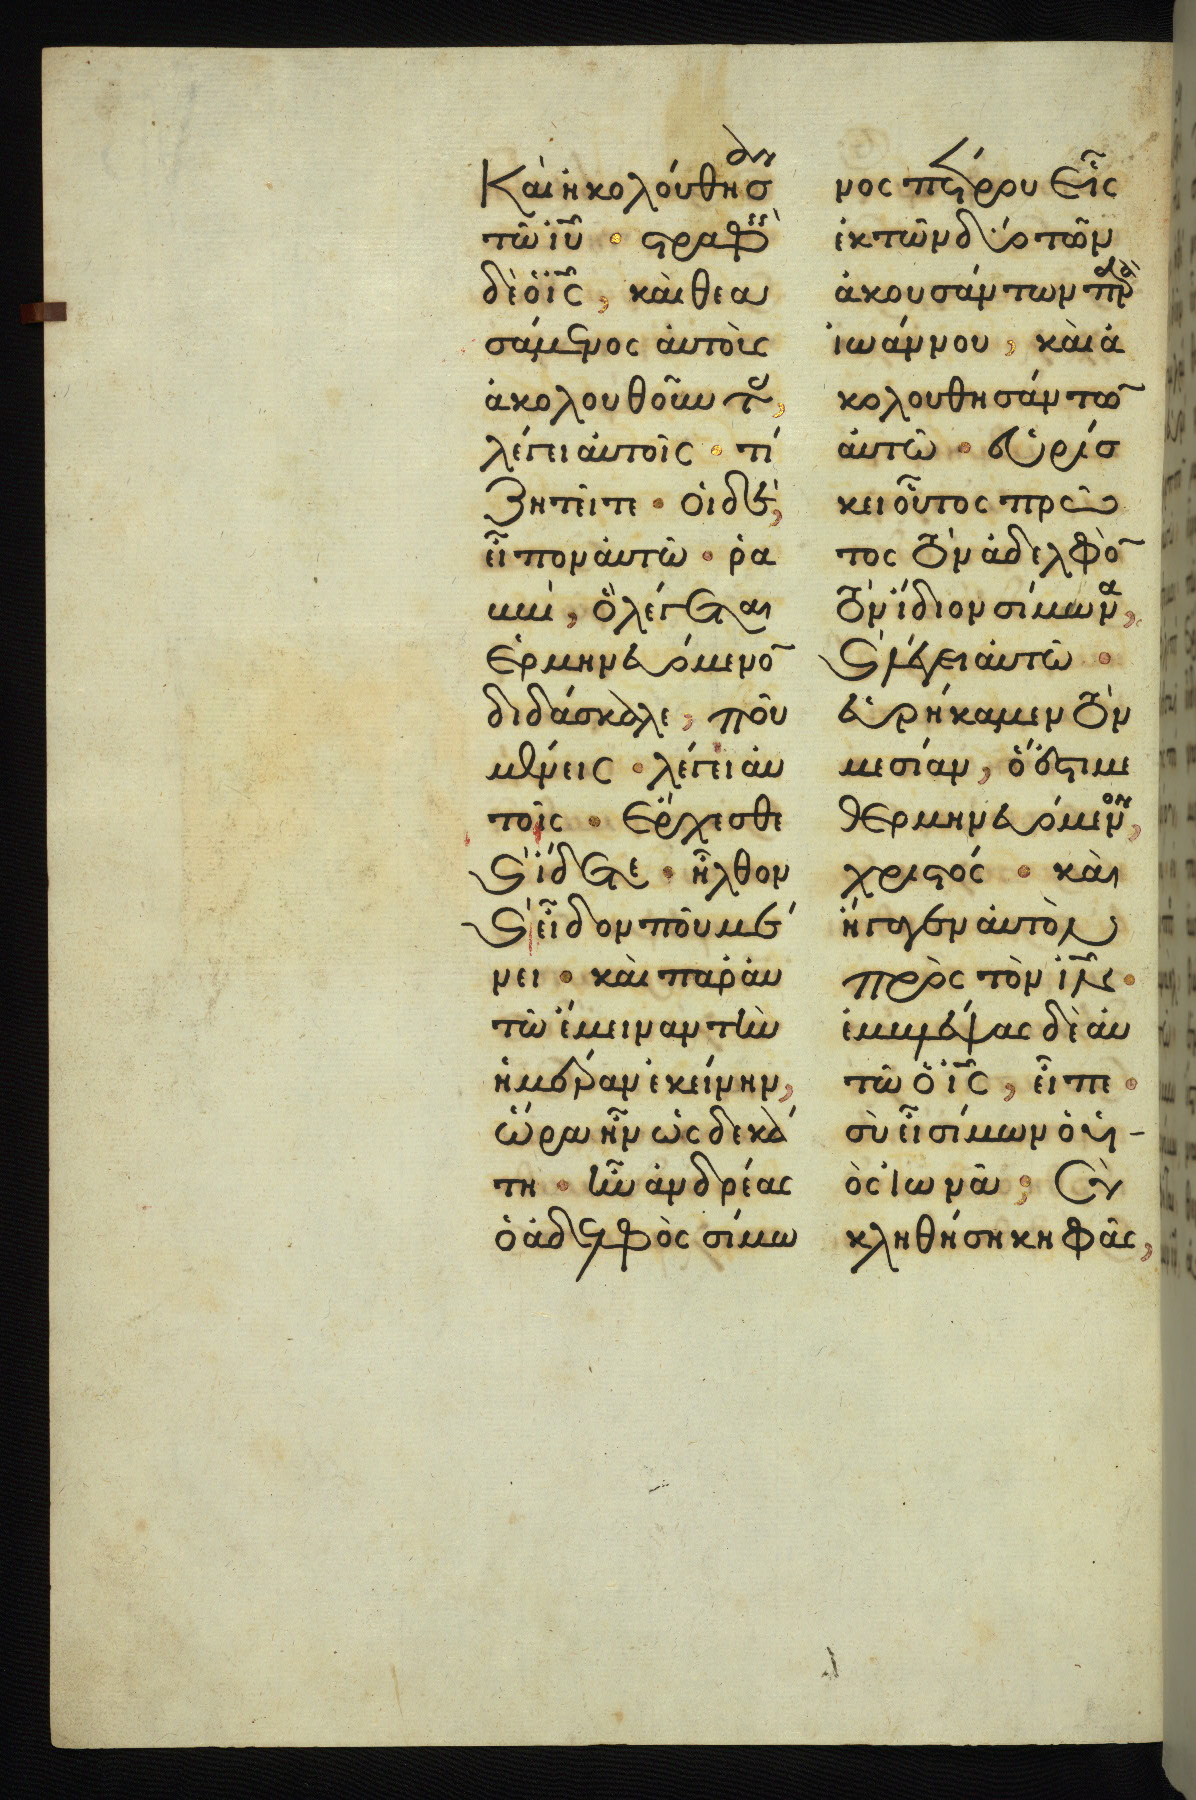 Καὶ ἠκολούθησαν
τῶ ἰῦ · στραφεὶς
δὲ ὁ ἰς, καὶ θεα
σάμενος αὐτοὺς
ἀκολουθοῦντας,
λέγει αὐτοῖς · τί
ζητεῖτε · οἱ δὲ,
εἶπον αὐτῶ · ῥα
ββί, ὃ λέγεται
ἑρμηνευόμενο̄
διδάσκαλε, ποῦ
μένεις · λέγει αὐ
τοῖς · ἔρχεσθε
καὶ ἴδετε · ἦλθον
καὶ εἶδον ποῦ μέ
νει · καὶ παρ' αὐ
τῶ ἔμειναν τὴν
ἡμέραν ἐκείνην,
ὥρα ἦν ὡς δεκά
τη · ἦν ἀνδρέας
ὁ ἀδελφὸς σίμω
νος πέτρου εἷς
ἐκ τῶν δύο τῶν
ἀκουσάντων παρὰ
ἰωάννου, καὶ ἀ
κολουθησάντω̄
αὐτῶ · εὑρίσ
κει οὗτος πρῶ
τος τὸν ἀδελφὸ̄
τὸν ἴδιον σίμωνα,
καὶ λέγει αὐτῶ ·
εὑρήκαμεν τὸν
μεσίαν, ὅ ἐστι με
θερμηνευόμενον,
χριστός · καὶ
ἤγαγεν αὐτὸν
πρὸς τὸν ἰν ·
ἐμβλέψας δὲ αὐ
τῶ ὁ ἰς, εἶπε ·
σὺ εἶ σίμων ὁ υἱ-
ὸς ἰωνᾶ, σὺ
κληθήση κηφᾶς,